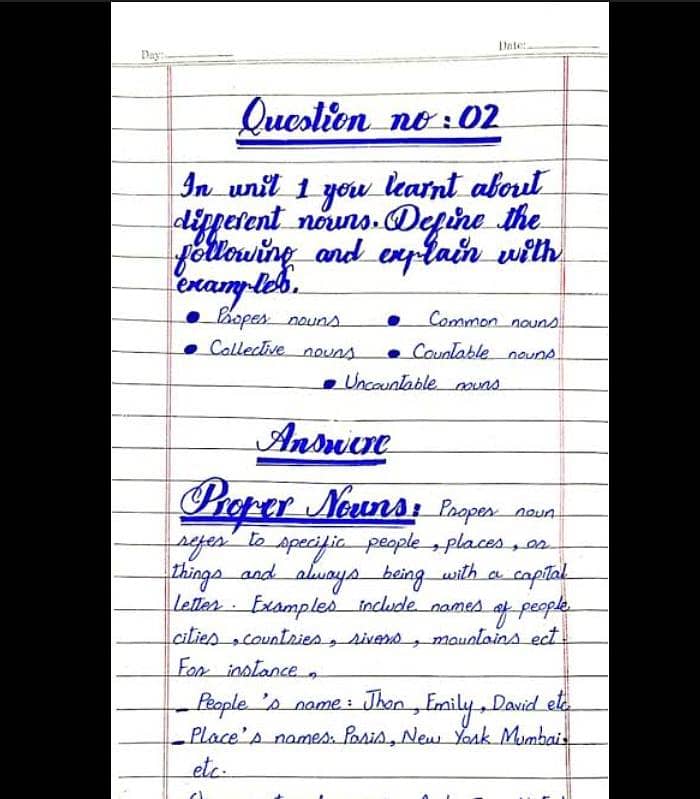 Day:
Date:
Question no : 02
In unit 1 you learnt about
different nouns. Define the
following and explain with
examples.
• Proper nouns • Common nouns
• Collective nouns • Countable nouns
• Uncountable nouns
Answere
Proper Nouns: Proper noun
refer to specific people, places, or
things and always being with a capital
letter. Examples include names of people,
cities, countries, rivers, mountains ect.
For instance,
_ People 's name: Jhon, Emily, David etc
_ Place's names: Paris, New York Mumbai,
etc.